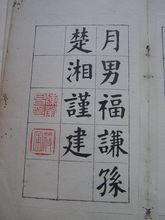 月男福謙孫
楚湘謹建